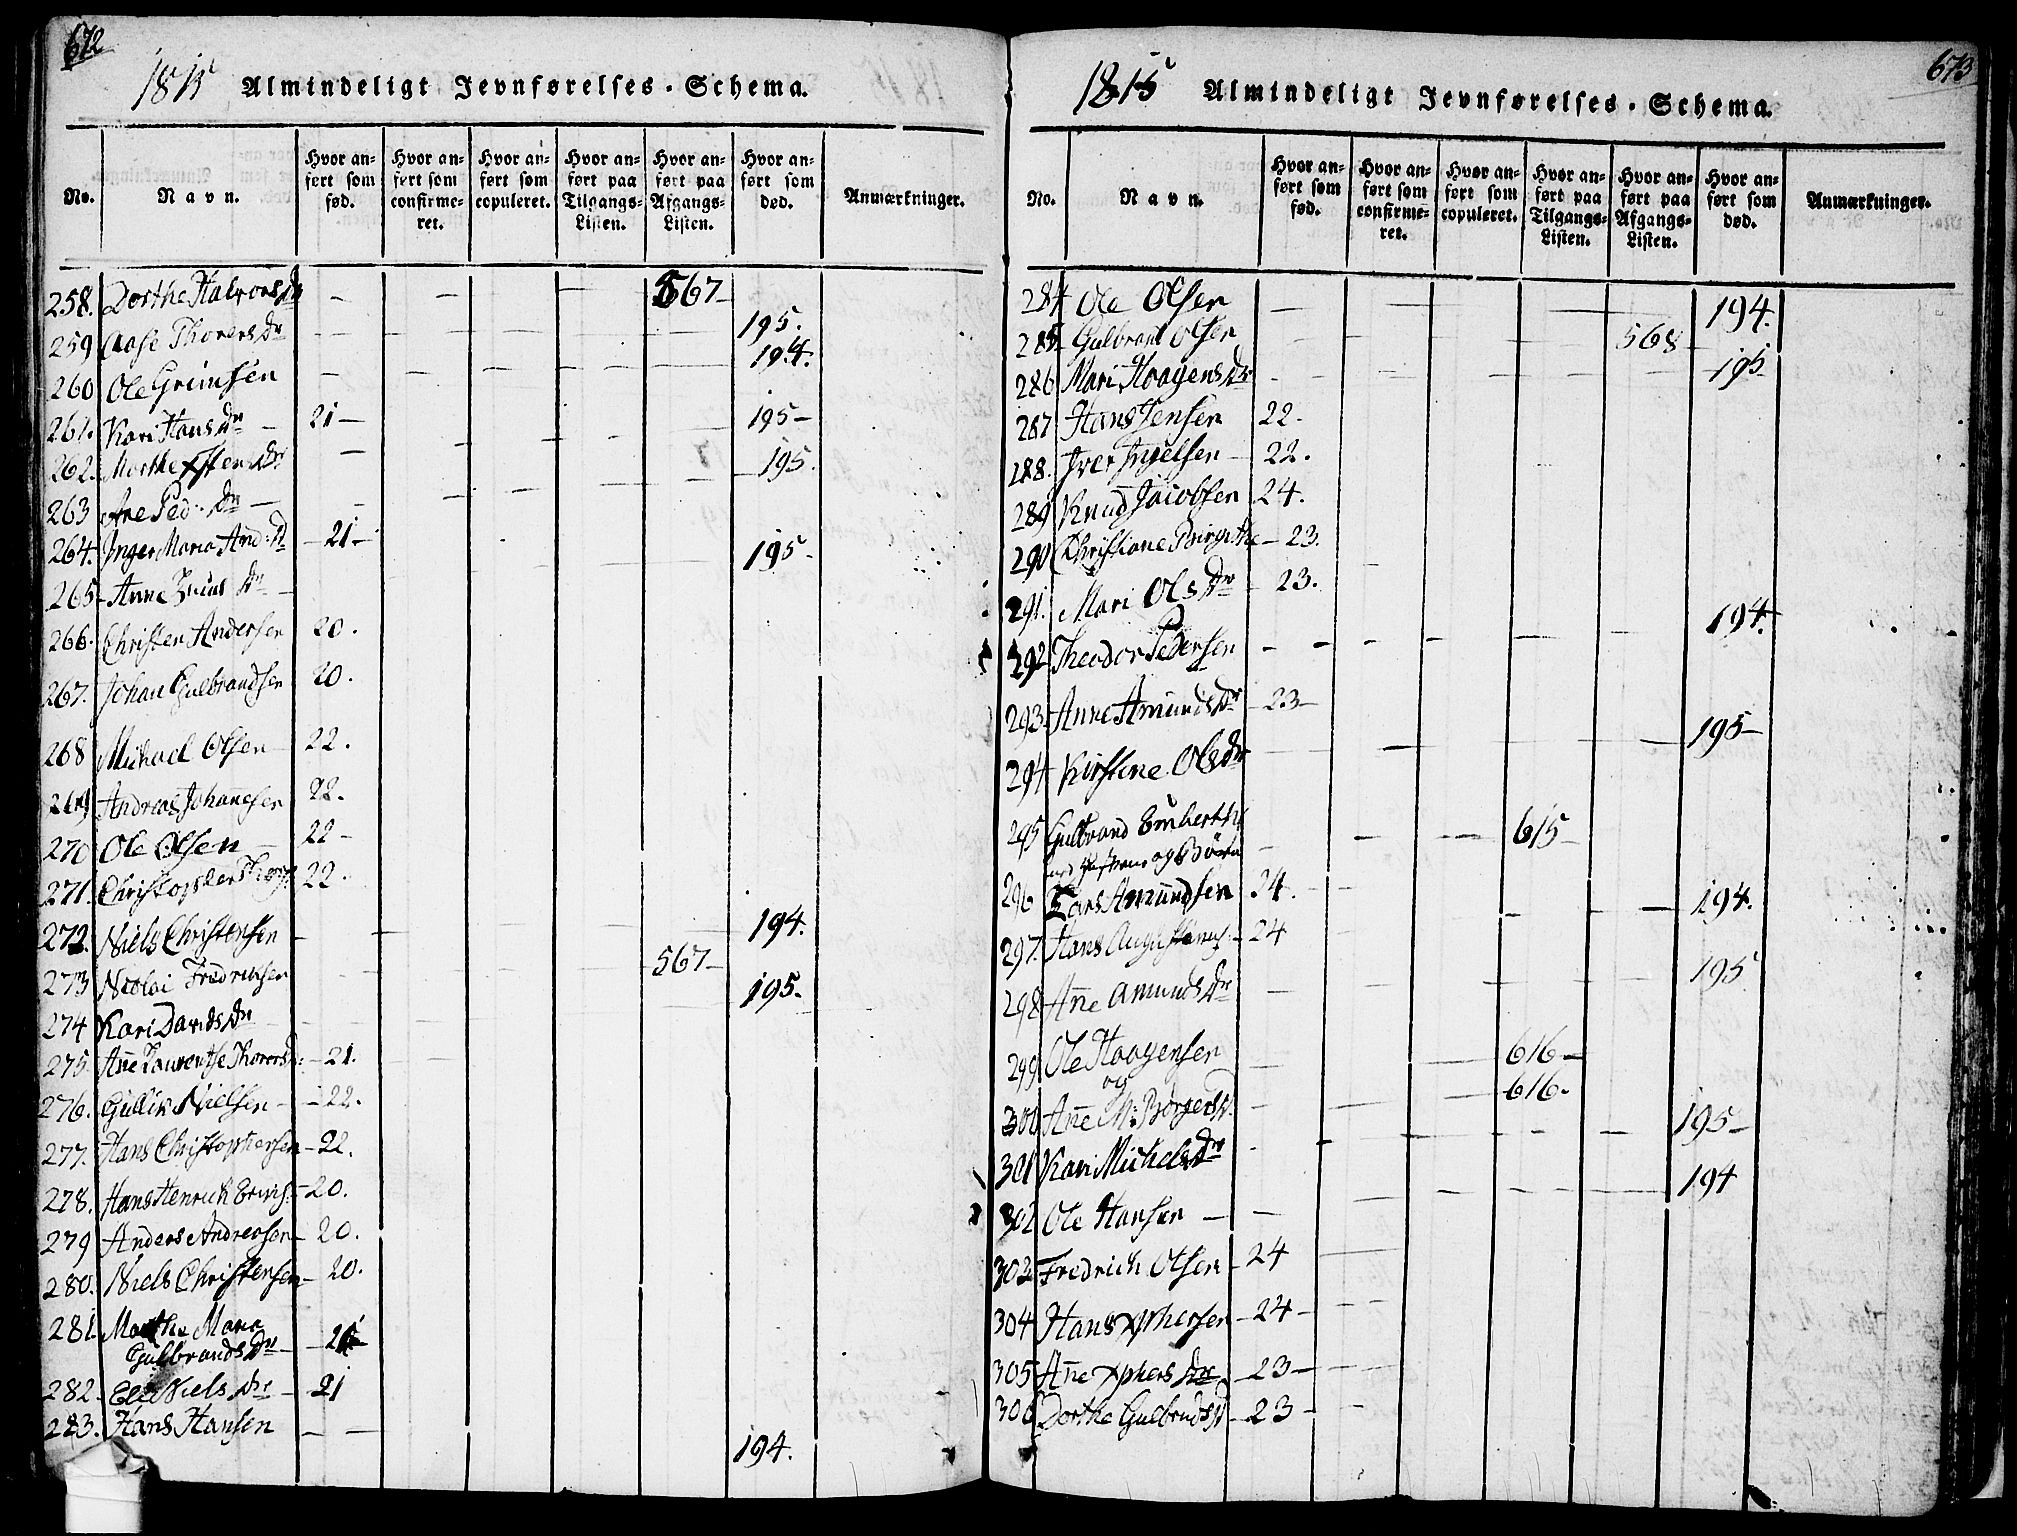 672
1815 Almindeligt Jevnførelses-Schema.
No. Navn. Hvor anført som fød. Hvor anført som confirmeret. Hvor anført som copuleret. Hvor anført paa Tilgangs-Listen. Hvor anført paa Afgangs-Listen. Hvor anført som død. Anmærkninger.
258. Dorthe Halvors Dr - - - - 567-
259 Aase Thorers Dr - - - - - 195.
260 Ole Grimsen - - - - - 194.
261. Kari Hans Dr - 21- 195-
262. Marthe Xsten Dr - - - - - 195.
263 Ane Ped: Dr -
264. Inger Maria And: D -21-
265- Anne Dr - 195-
266. Christen Andersen 20.
267. Johan Gulbrandsen 20.
268 Michael Olsen- 22.
269 Andreas Johanesen 22.
270 Ole Olsen - 22-
271. Christopher 22.
272. Niels Christensen - - - - - 194.
273 Nicolai Fredrichsen - - - - 567-
274 Kari Davids Dr - - - - - 195.
275. Ane Laurentse Thorers D: -21.
276. Gullik Nielsen - -22.
277. Hans Christophersen -22.
278. Hans Henrich -20.
279 Anders Andersen - 20.
280. Niels Christensen - 20.
281. Marthe Maria
Gulbrands Dr - -21-
282. Niels Dr - 21
283. Hans Hansen - - 194.
673
1815 Almindeligt Jevnførelses-Schema.
No. Navn. Hvor anført som fød. Hvor anført som confirmeret. Hvor anført som copuleret. Hvor anført paa Tilgangs-Listen. Hvor anført paa Afgangs-Listen. Hvor anført som død. Anmærkninger.
284 Ole Olsen - - - - - 194.
285 Gulbrand Olsen - - - - 568-
286 Mari Haagens Dr - - - - - -195-
287 Hans Jensen 22.
288. Iver Ingelsen - 22.
289 Knud Jacobsen 24.
290 Christiane - 23.
291. Mari Ols Dr - 23.
292 Theodor Pedersen - - - - - 194.
293. Anne Amunds Dr -23-
294 Kirstine Ols Dr - - - - - 195-
295 Gulbrand
og Børn - - - 615-
296 Lars Amundsen 24. - - - - 194.
297. Hans - 24
298 Ane Amunds Dr - - - - - 195
299 Ole Haagensen - - - 616-
og
300 Ane M: Børgers D. - - - 616.
301 Kari Michels Dr - - - - - 195-
302 Ole Hansen - - - - - - 194
303 Fredrich Olsen - 24
304 Hans Xphersen - 24-
305 Ane Xphers Dr - 23-
306 Dorthe Gulbrnds D - 23-